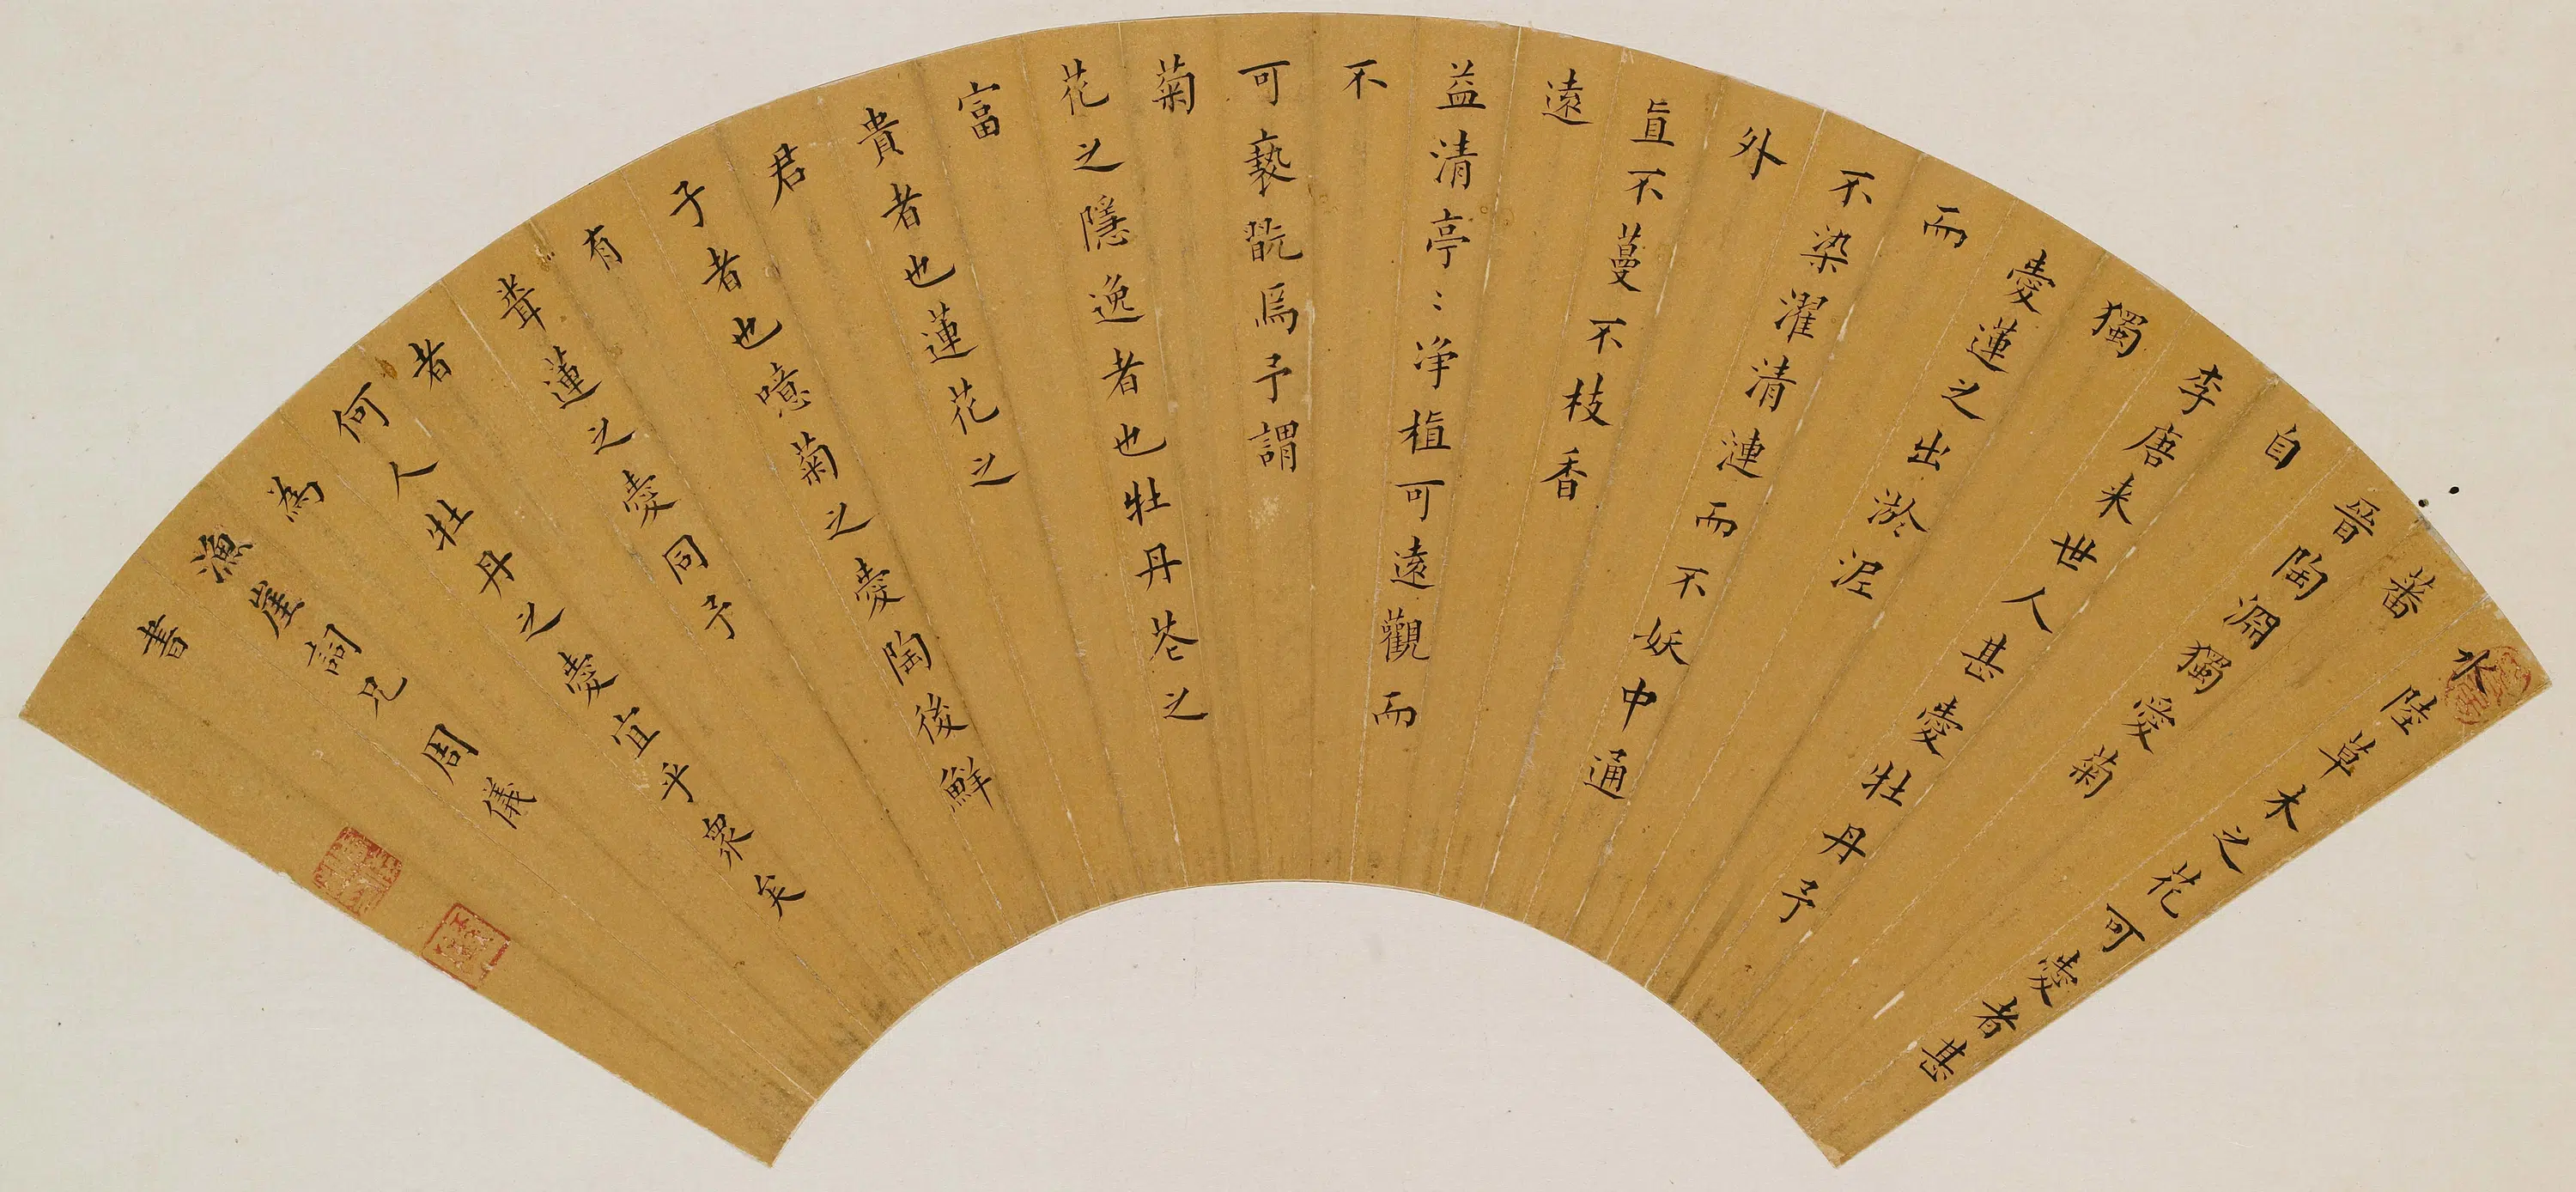 水陸草木之花可愛者甚
蕃
晉陶淵獨愛菊
自
李唐来世人甚愛牡丹予
獨
愛蓮之出淤泥
而
不染濯清漣而不妖中通
外
直不蔓不枝香
遠
益清亭〻净植可遠觀而
不
可褻翫焉予謂
菊
花之隱逸者也牡丹花之
富
貴者也蓮花之
君
子者也噫菊之愛陶後鮮
有
䎽蓮之愛同予
者
何人牡丹之愛宜乎衆矣
為
漁崖詞兄 周儀
書